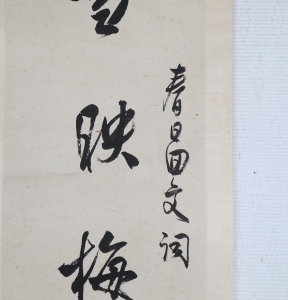 春日回文词
雪映梅